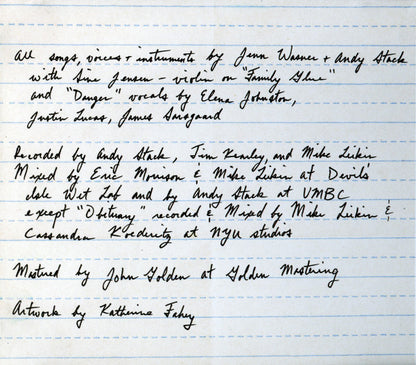 All songs, voices + instruments by Jenn Wasner + Andy Stack
with Sine Jensen - violin on "Family Glue"
and "Danger" vocals by Elena Johnston,
Justin Lucas, James Sarsgaard
Recorded by Andy Stack, Tim Kealey, and Mike
Mixed by Eric Morrison & Mike at Devil's
Isle Wet Lab and by Andy Stack at UMBC
except "Obituary" recorded & Mixed by Mike &
Cassandra at NYU studios
Mastered by John Golden at Golden Mastering
Artwork by Katherine Fahey